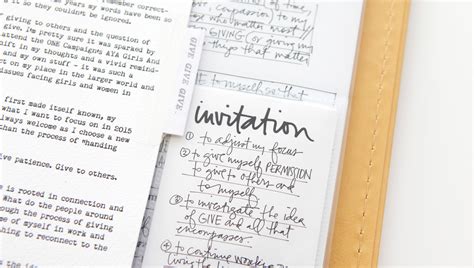 years my words have been
it so they couldn't be ignored.
giving to others and the question of
give. I'm pretty sure it was sparked by
attend the ONE Campaign's AYA Girls And
shift in my thoughts and a vivid remind-
and my own stuff - it was such a
my place in the larger world and
issues facing girls and women in
first made itself known, my
what I want to focus on in 2015
always welcome as I choose a new
than the process of *handing
give patience. Give to others.
is rooted in connection and
What do the people around
through the process of giving
me of myself in work and
ching to reconnect to the
GIVE GIVE GIVE
time, compassion) to my
GIVING (or giving my
things that matter
to myself so that
invitation
① to adjust my focus
② to give myself PERMISSION
to give to others and
to myself
③ to investigate the idea
of GIVE and all that
encompasses.
④ to continue working